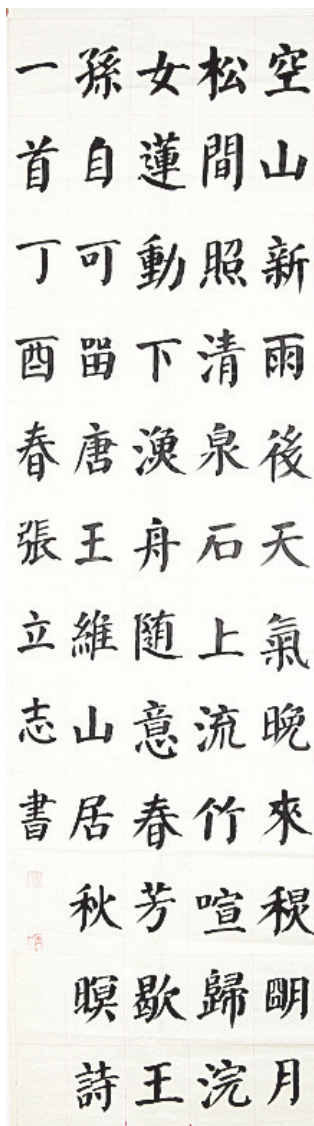 空山新雨後天氣晚來秋朙月
松間照清泉石上流竹喧歸浣
女蓮動下漁舟随意春芳歇王
孫自可留唐王維山居秋暝詩
一首丁酉春張立志書